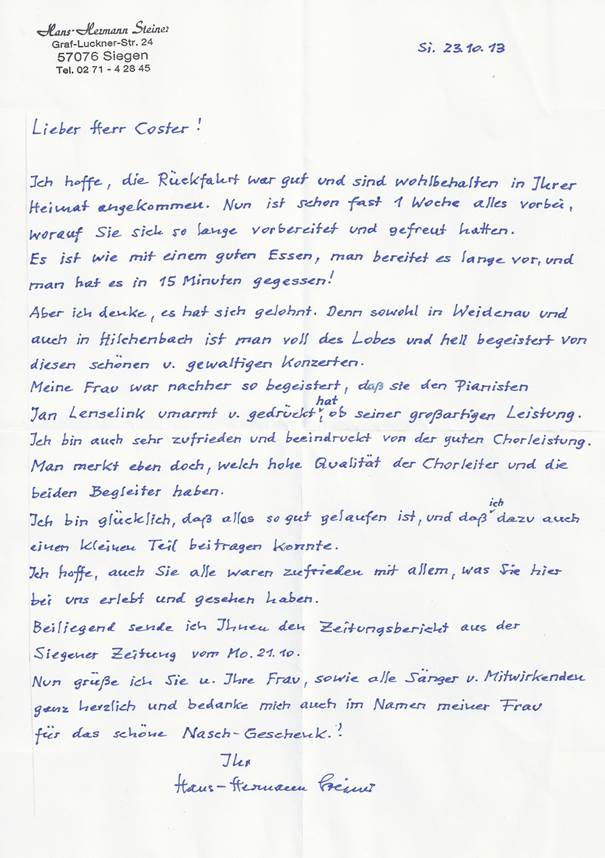 Hans-Hermann Steiner
Graf-Luckner-Str. 24
57076 Siegen
Tel. 02 71 - 4 28 45
Si. 23.10.13
Lieber Herr Coster!
Ich hoffe, die Rückfahrt war gut und sind wohlbehalten in Ihrer
Heimat angekommen. Nun ist schon fast 1 Woche alles vorbei,
worauf Sie sich so lange vorbereitet und gefreut hatten.
Es ist wie mit einem guten Essen, man bereitet es lange vor, und
man hat es in 15 Minuten gegessen!
Aber ich denke, es hat sich gelohnt. Denn sowohl in Weidenau und
auch in Hilchenbach ist man voll des Lobes und hell begeistert von
diesen schönen u. gewaltigen Konzerten.
Meine Frau war nachher so begeistert, daß sie den Pianisten
Jan Lenselink umarmt u. gedrückt hat, ob seiner großartigen Leistung.
Ich bin auch sehr zufrieden und beeindruckt von der guten Chorleistung.
Man merkt eben doch, welch hohe Qualität der Chorleiter und die
beiden Begleiter haben.
Ich bin glücklich, daß alles so gut gelaufen ist, und daß ich dazu auch
einen kleinen Teil beitragen konnte.
Ich hoffe, auch Sie alle waren zufrieden mit allem, was Sie hier
bei uns erlebt und gesehen haben.
Beiliegend sende ich Ihnen den Zeitungsbericht aus der
Siegener Zeitung vom Mo. 21.10.
Nun grüße ich Sie u. Ihre Frau, sowie alle Sänger u. Mitwirkenden
ganz herzlich und bedanke mich auch im Namen meiner Frau
für das schöne Nasch-Geschenk.!
Ihr
Hans-Hermann Steiner